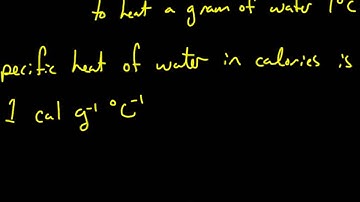 to heat a gram of water 1°C
pecific heat of water in calories is
1 cal g⁻¹ °C⁻¹